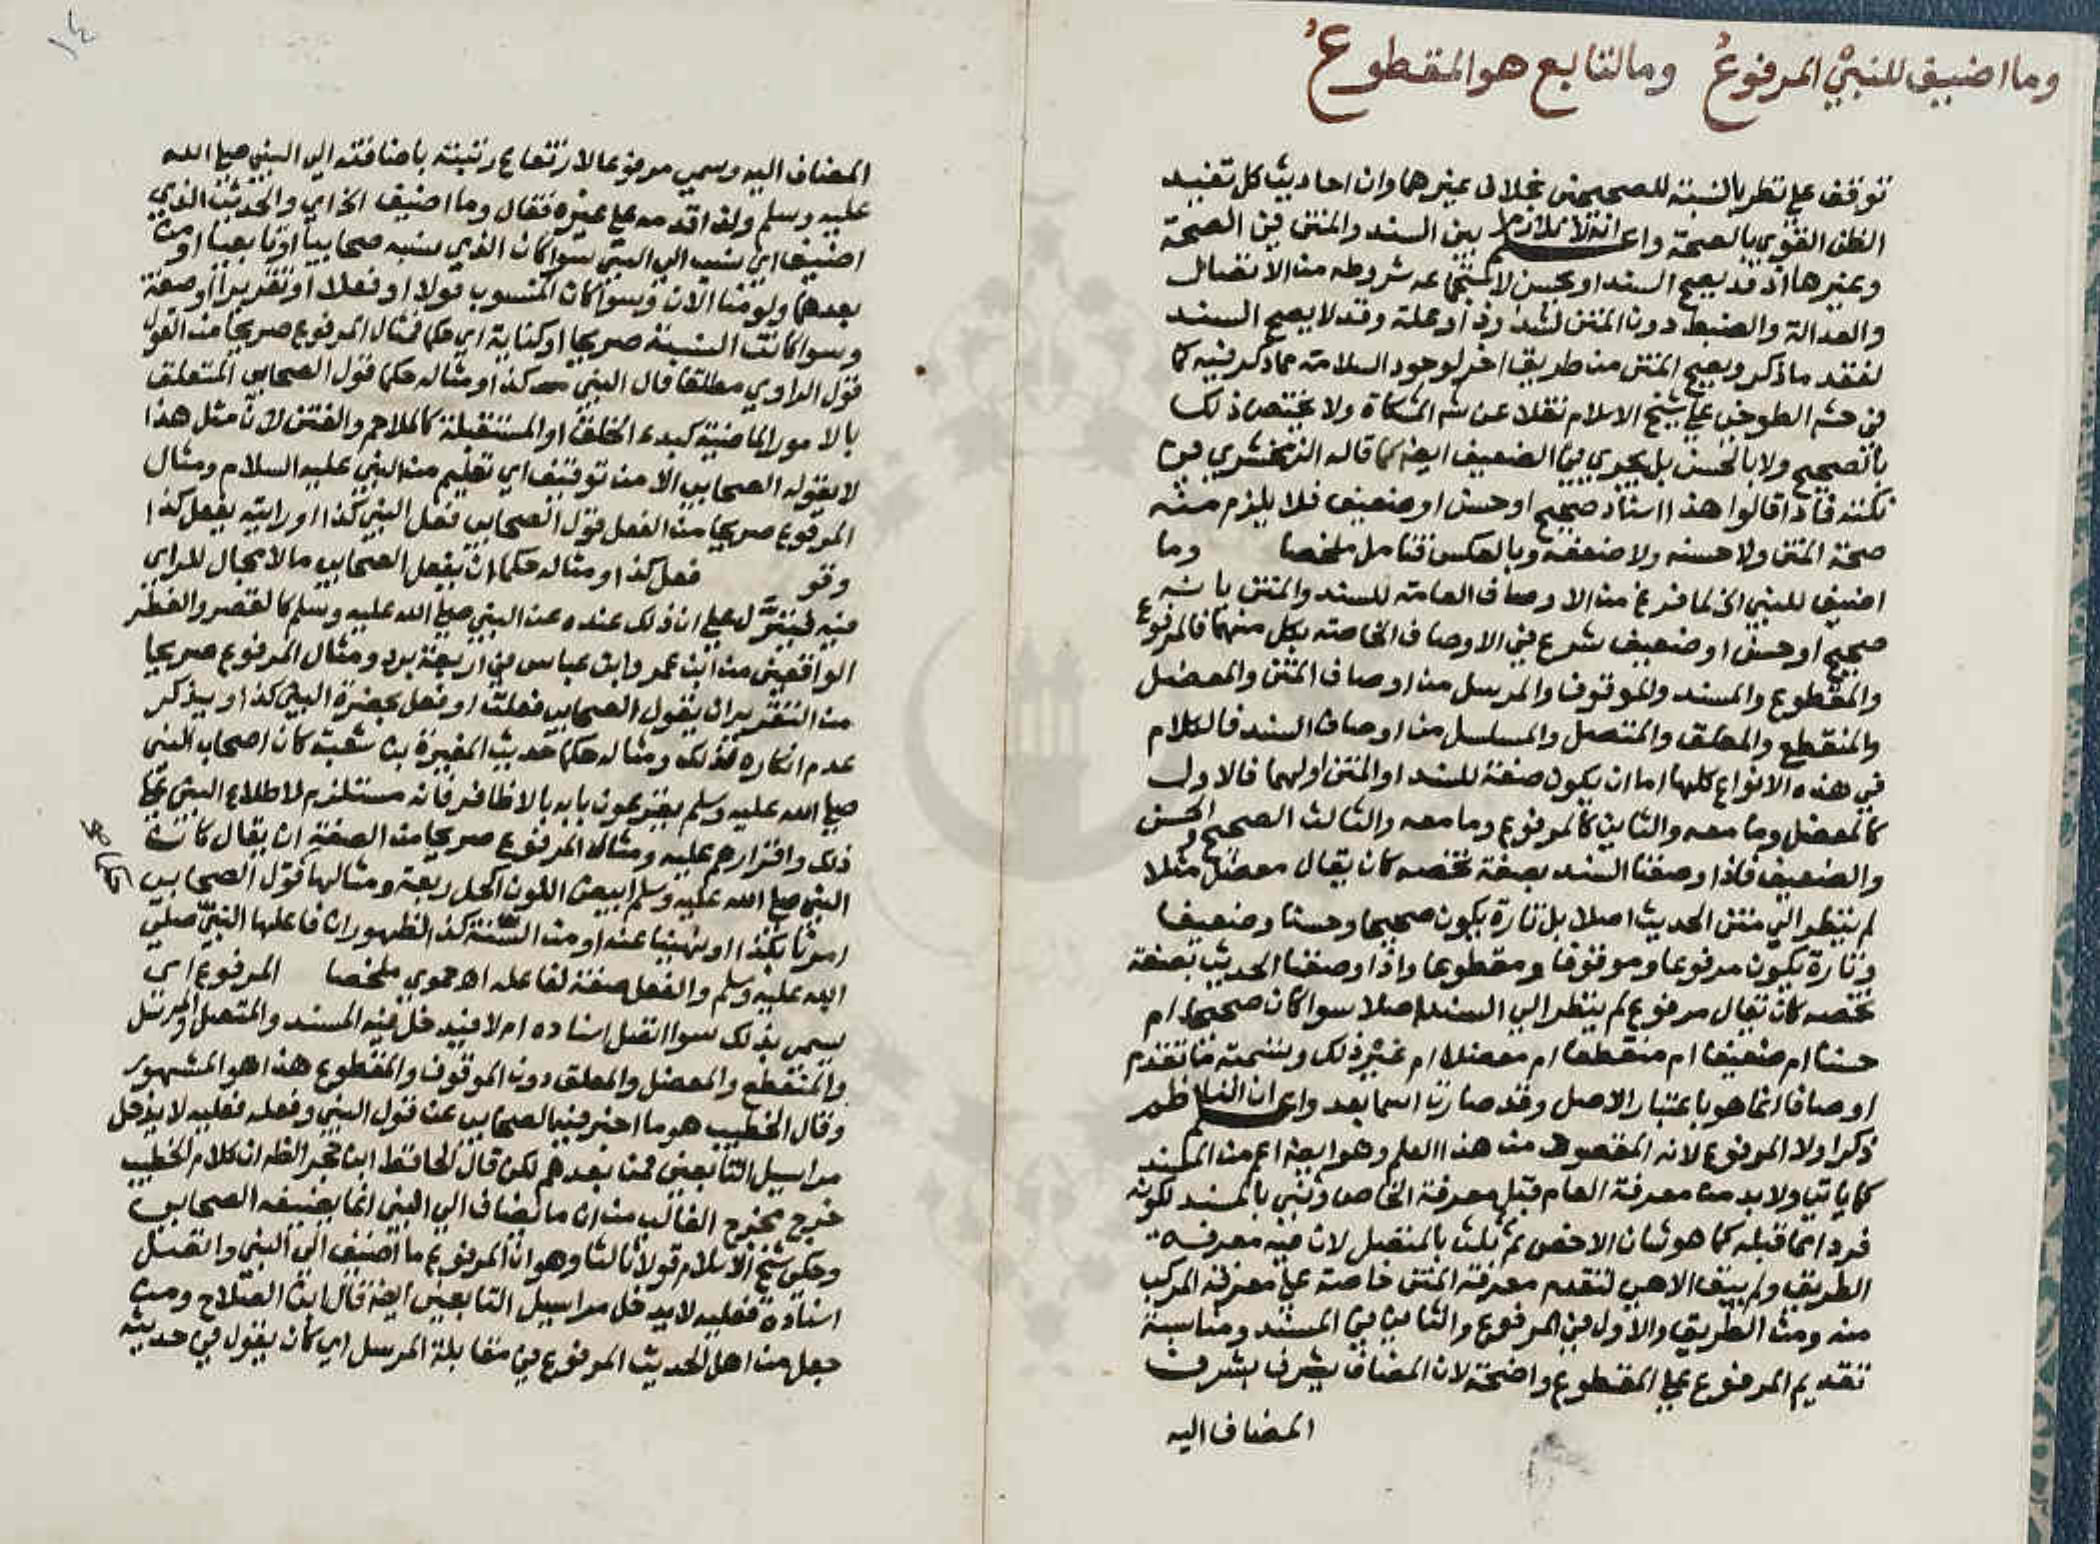 وما اضيف للنبي المرفوعُ وما لتابع هو المقطوعُ
توقف على نظر بالنسبة للصحيحين بخلاف غيرهما وان احاديث كل تفيد
الظن القوي بالصحة واعلم انه لا تلازم بين السند والمتن في الصحة
وغيرها اذ قد يصح السند او يحسن لاستجماعه شروطه من الاتصال
والعدالة والضبط دون المتن لشذوذ او علة وقد لا يصح السند
لفقد ما ذكر ويصح المتن من طريق اخر لوجود السلامة مما ذكر فيه كما
في حش الطوخي على شيخ الاسلام نقلا عن شم المشكاة ولا يختص ذلك
بالصحيح ولا بالحسن بل يجري في الضعيف ايضا كما قاله الزركشي في
نكته فاذا قالوا هذا اسناد صحيح او حسن او ضعيف فلا يلزم منه
صحة المتن ولا حسنه ولا ضعفه وبالعكس فتامل ملخصا وما
اضيف للنبي الخ لما فرغ من الاوصاف العامة للسند والمتن بانه
صحيح او حسن او ضعيف شرع في الاوصاف الخاصة بكل منهما فالمرفوع
والمقطوع والمسند والموقوف والمرسل من اوصاف المتن والمعضل
والمنقطع والمعلق والمتصل والمسلسل من اوصاف السند فالكلام
في هذه الانواع كلها اما ان يكون صفة للسند او المتن او لهما فالاول
كالمعضل وما معه والثاني كالمرفوع وما معه والثالث الصحيح والحسن
والضعيف فاذا وصفنا السند بصفة تخصه كان يقال معضل مثلا
لم ينظر الي متن الحديث اصلا بل تارة يكون صحيحا وحسنا وضعيفا
وتارة يكون مرفوعا وموقوفا ومقطوعا واذا وصفنا الحديث بصفة
تخصه كان تقال مرفوع لم ينظر الي السند اصلا سوا كان صحيحا ام
حسنا ام ضعيفا ام منقطعا ام معضلا ام غير ذلك وتسمية ما تقدم
اوصافا انما هو باعتبار الاصل وقد صارت اسما بعد واعلم ان الناظم
ذكر اولا المرفوع لانه المقصود من هذا العلم وهو ايضا اعم من المسند
كما ياتي ولا بد من معرفة العام قبل معرفة الخاص وثني بالمسند لكونه
فردا مما قبله كما هو شان الاخص ثم ثلث بالمتصل لان فيه معرفة
الطريق ولم يبق الاهي لتقدم معرفة المتن خاصة على معرفة المركب
منه ومن الطريق والاول في المرفوع والثاني في المسند ومناسبة
تقديم المرفوع على المقطوع واضحة لان المضاف يشرف بشرف
المضاف اليه
١٤
المضاف اليه وسمي مرفوعا لارتفاع رتبته باضافته الي النبي صلى الله
عليه وسلم ولذا قدمه على غيره فقال وما اضيف الخ اي والحديث الذي
اضيف اي نسب الي النبي سوا كان الذي نسبه صحابيا او تابعيا او من
بعدهما ولو منا الان وسوا كان المنسوب قولا او فعلا او تقريرا او صفة
وسوا كانت النسبة صريحا او كناية اي حكما فمثال المرفوع صريحا من القول
قول الراوي مطلقا قال النبي كذا ومثاله حكما قول الصحابي المتعلق
بالامور الماضية كبدء الخلق او المستقبلة كالملاحم والفتن لان مثل هذا
لا يقوله الصحابي الا من توقيف اي تعليم من النبي عليه السلام ومثال
المرفوع صريحا من الفعل قول الصحابي فعل النبي كذا او رايته يفعل كذا
وقو فعل كذا ومثاله حكما ان يفعل الصحابي ما لا مجال للراي
فيه فينزّل على ان ذلك عنده عن النبي صلى الله عليه وسلم كالقصر والفطر
الواقعين من ابن عمر وابن عباس في اربعة برد ومثال المرفوع صريحا
من التقرير ان يقول الصحابي فعلت او فعل بحضرة النبي كذا ويذكر
عدم انكاره لذلك ومثاله حكما حديث المغيرة بن شعبة كان اصحاب النبي
صلى الله عليه وسلم يقرعون بابه بالاظافر فانه مستلزم لاطلاع النبي على
ذلك واقرارهم عليه ومثال المرفوع صريحا من الصفة ان يقال كان
النبي صلى الله عليه وسلم ابيض اللون اكحل ربعة ومثالها قول الصحابي
امرنا بكذا او نهينا عنه او من السنة كذا لظهور ان فاعلها النبي صلى
الله عليه وسلم والفعل صفة لفاعله اه حموي ملخصا المرفوع اي
يسمى بذلك سوا اتصل اسناده ام لا فيدخل فيه المسند والمتصل والمرسل
والمنقطع والمعضل والمعلق دون الموقوف والمقطوع هذا هو المشهور
وقال الخطيب هو ما اخبر فيه الصحابي عن قول النبي وفعله فعليه لا يدخل
مراسيل التابعين فمن بعدهم لكن قال الحافظ ابن حجر الظ ان كلام الخطيب
خرج مخرج الغالب من ان ما يضاف الي النبي انما يضيفه الصحابي
وحكى شيخ الاسلام قولا ثالثا وهو ان المرفوع ما اضيف الي النبي واتصل
اسناده فعليه لا يدخل مراسيل التابعين ايضا قال ابن الصلاح ومن
جعل من اهل الحديث المرفوع في مقابلة المرسل اي كان يقول في حديث